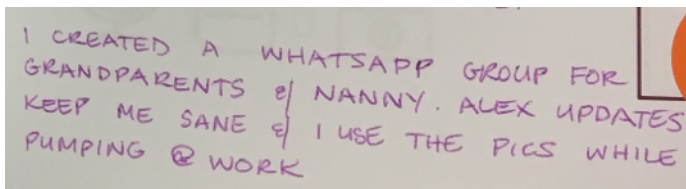 I CREATED A WHATSAPP GROUP FOR
GRANDPARENTS & NANNY. ALEX UPDATES
KEEP ME SANE & I USE THE PICS WHILE
PUMPING @ WORK